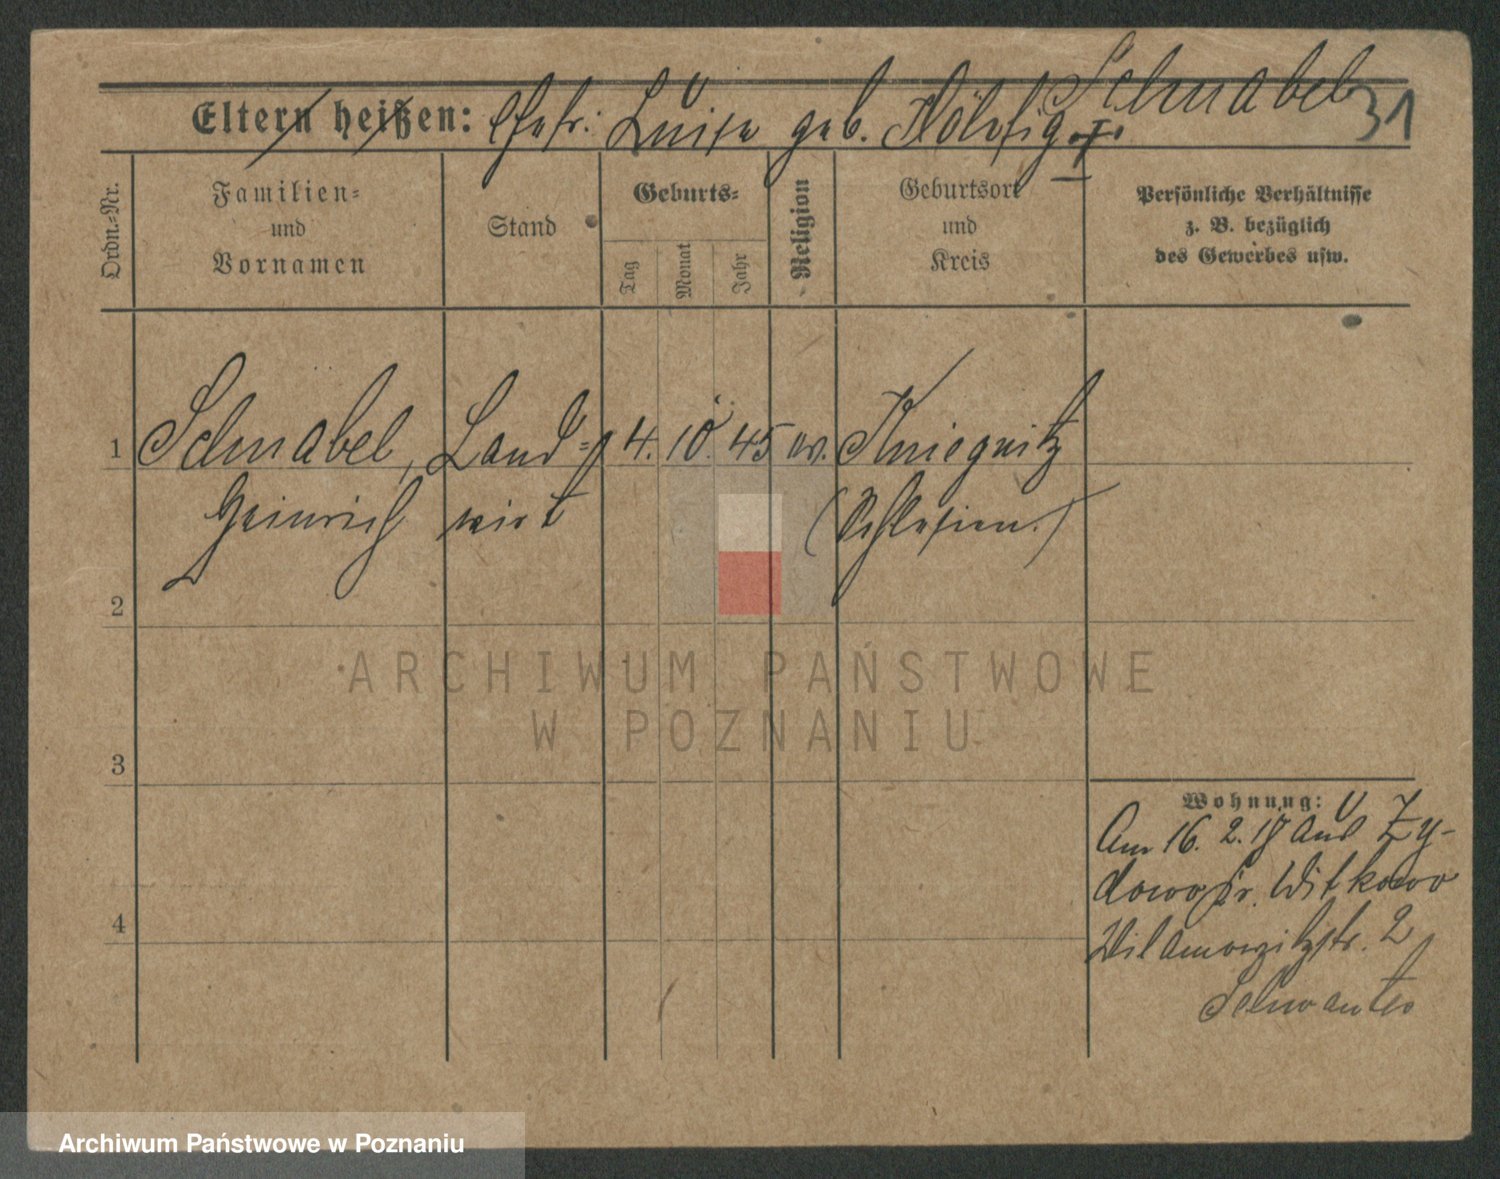 Schnabel
31
Eltern heißen: Ehefr: Luise geb. Hölzig
Ordn.=Nr.
Familien=
und
Vornamen
Stand
Geburts=
Tag
Monat
Jahr
Religion
Geburtsort
und
Kreis
Persönliche Verhältnisse
z. B. bezüglich
des Gewerbes usw.
1 Schnabel, Land= 4. 10. 45 ev. Kniegnitz
Heinrich wirt (Schlesien.)
2
3
4
Wohnung:
Am 16. 2. 17 aus Zy-
dowo Kr. Witkowo
Wilamowitzstr. 2
Schwantes
ARCHIWUM PAŃSTWOWE
W POZNANIU
Archiwum Państwowe w Poznaniu